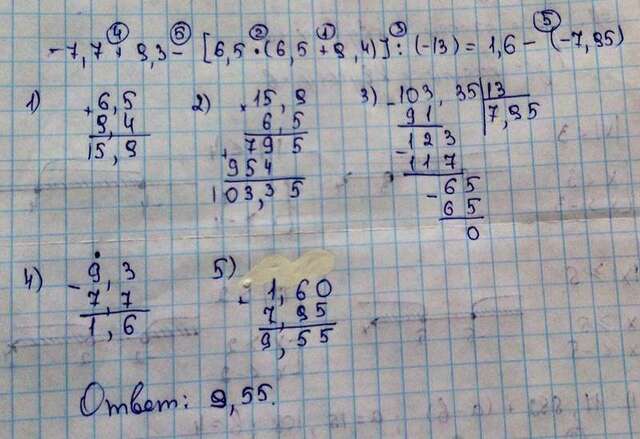 ④ ⑤ ② ① ③ ⑤
-7,7 + 9,3 - [6,5 · (6,5 + 9,4)] : (-13) = 1,6 - (-7,95)
1) + 6,5
9,4
15,9
2) × 15,9
6,5
+ 79 5
954
103,35
3) - 103,35 | 13
91 7,95
123
- 117
- 65
65
0
4) - 9,3
7,7
1,6
5) + 1,60
7,95
9,55
Ответ: 9,55.